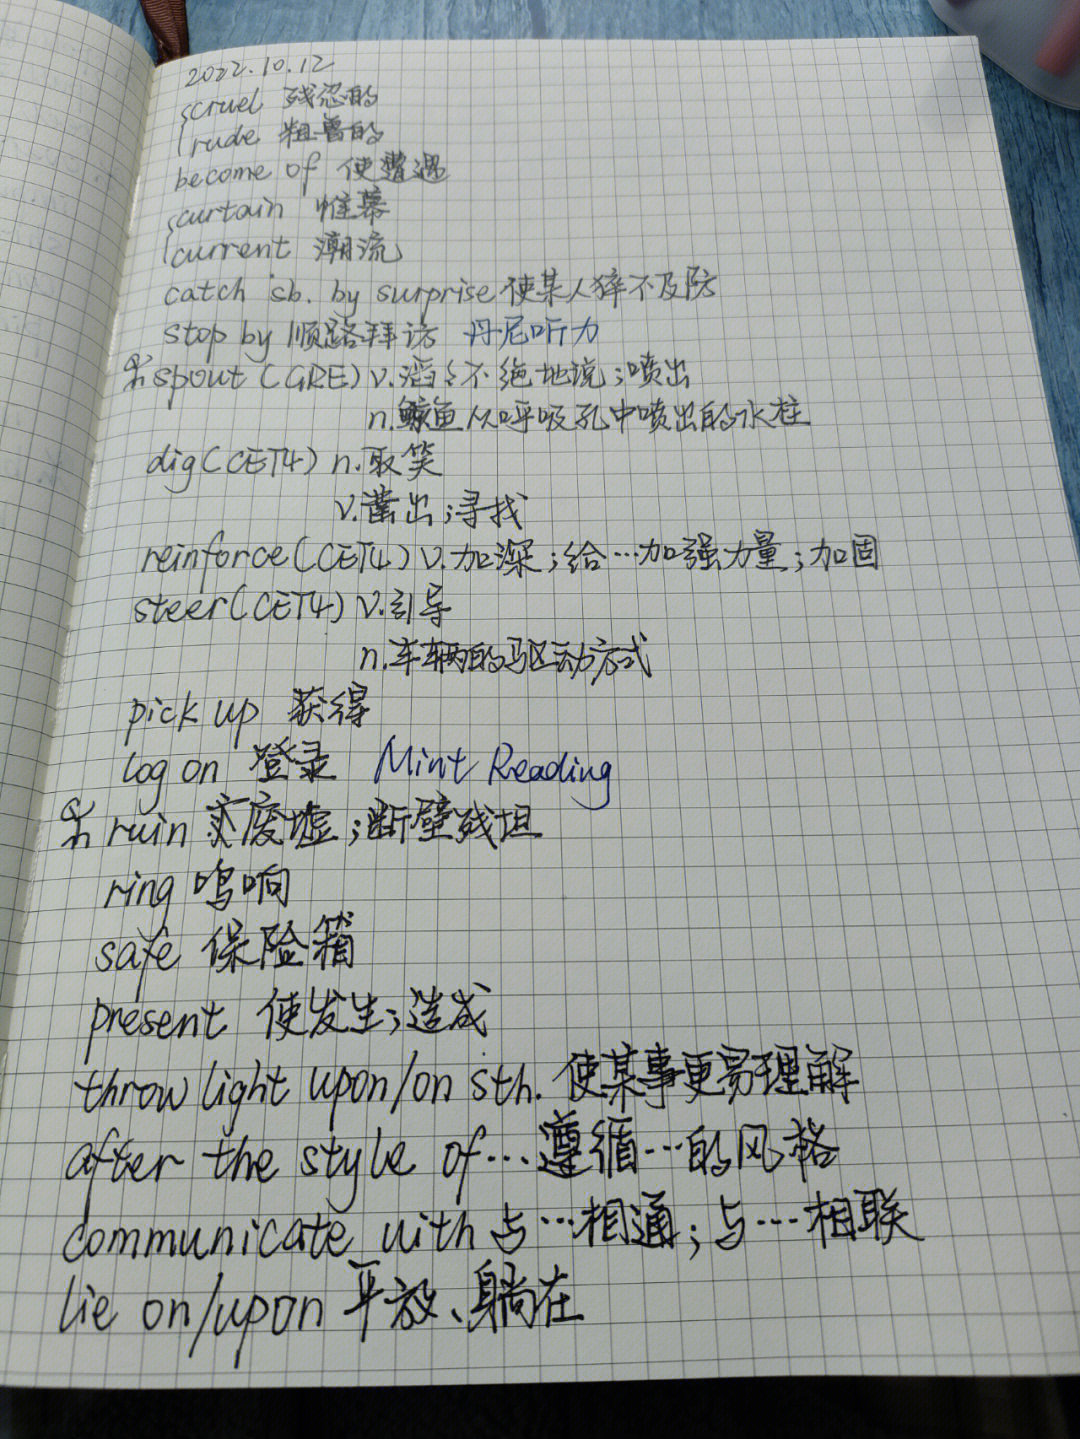 2022.10.12
cruel 残忍的
rude 粗鲁的
become of 使遭遇
curtain 帷幕
current 潮流
catch sb. by surprise 使某人猝不及防
stop by 顺路拜访 丹尼听力
spout (GRE) v.滔々不绝地说;喷出
n.鲸鱼从呼吸孔中喷出的水柱
dig (CET4) n.取笑
v.凿出;寻找
reinforce (CET4) v.加深;给…加强力量;加固
steer (CET4) v.引导
n.车辆的驱动方式
pick up 获得
log on 登录 Mint Reading
ruin 废墟;断壁残垣
ring 鸣响
safe 保险箱
present 使发生;造成
throw light upon/on sth. 使某事更易理解
after the style of…遵循…的风格
communicate with 与…相通;与…相联
lie on/upon 平放、躺在